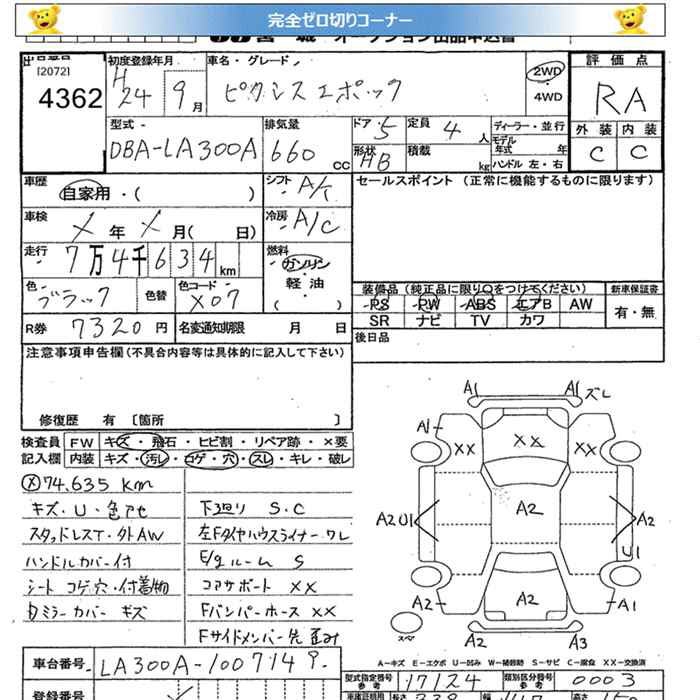 完全ゼロ切りコーナー
宮城 オークション出品申込書
出品番号
[2072]
4362
初度登録年月
H24 9月
車名・グレード
ピクシスエポック
2WD
・4WD
評価点
RA
外装 内装
C C
型式
DBA-LA300A
排気量
660 CC
ドア・ 5
形状 HB
定員 4 人
積載 kg
ディーラー・並行
モデル年式 年
ハンドル 左・右
車歴
自家用・( )
シフト A/T
セールスポイント(正常に機能するものに限ります)
車検
X 年 X 月( 日)
冷房 A/C
走行
7万4千634km
燃料
ガソリン
・軽油・
( )
色
ブラック
色替
色コード
X07
装備品(純正品に限り○をつけてください)
新車保証書
PS PW ABS エアB AW
SR ナビ TV カワ
有・無
R券 7320円
名変通知期限 月 日
後日品
注意事項申告欄(不具合内容等は具体的に記入して下さい)
修復歴 有〔箇所 〕
検査員 FW キズ・飛石・ヒビ割・リペア跡・×要
記入欄 内装 キズ・汚レ・コゲ・穴・スレ・キレ・破レ
メ74.635km
キズ・U・色アセ
スタッドレスT・外AW
ハンドルカバー付
シート コゲ穴・付着物
ミラーカバー キズ
下廻り S.C
左Fタイヤハウスライナー ワレ
E/gルーム S
コアサポート XX
Fバンパーホース XX
Fサイドメンバー先 歪み
A1 A1 ズレ
A1 XX XX XX
A2 U1 A2 A2
U1
A2 A2 A1
スペア
A2 A3
A-キズ E-エクボ U-凹み W-補修跡 S-サビ C-腐食 XX-交換済
車台番号 LA300A-1007149
型式指定番号 17124
類別区分番号 0003
登録番号